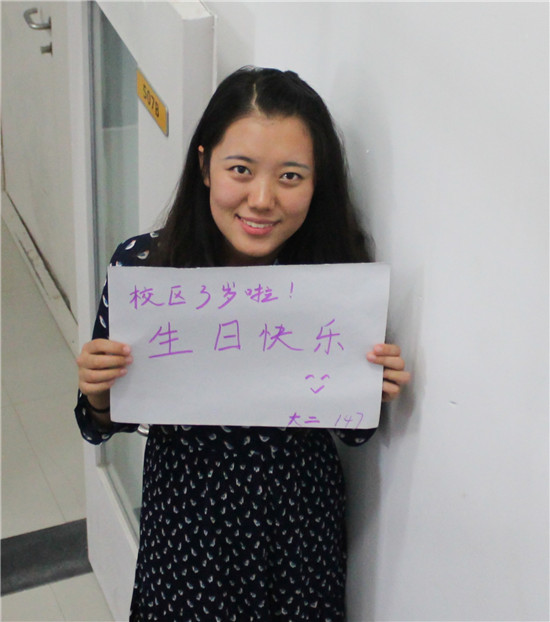 507B
校区3岁啦!
生日快乐
大二 147